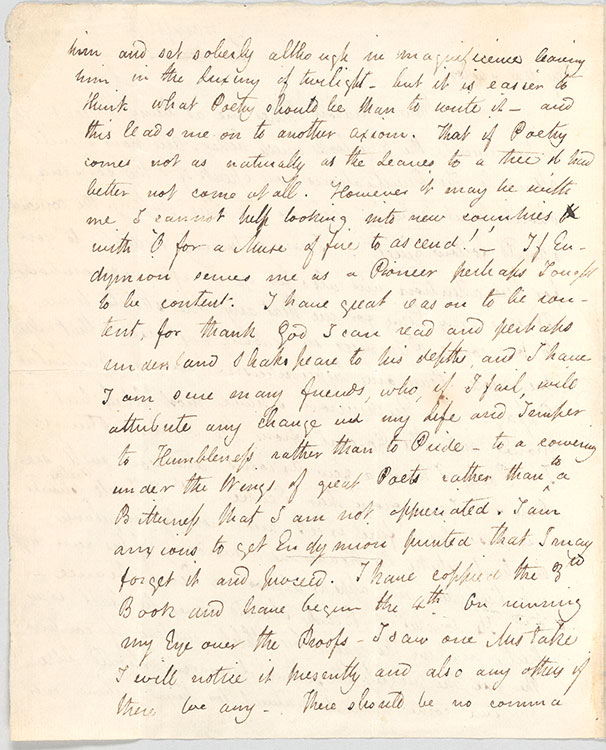 him and set soberly although in magnificence leaving
him in the Luxury of twilight – but it is easier to
think what Poetry should be than to write it – and
this leads me on to another axiom. That if Poetry
comes not as naturally as the Leaves to a tree it had
better not come at all. However it may be with
me I cannot help looking into new countries
with 'O for a Muse of fire to ascend!' – If En-
dymion serves me as a Pioneer perhaps I ought
to be content. I have great reason to be con-
tent, for thank God I can read and perhaps
understand Shakspeare to his depths, and I have
I am sure many friends, who, if I fail, will
attribute any change in my Life and Temper
to Humbleness rather than to Pride – to a cowering
under the Wings of great Poets rather than to a
Bitterness that I am not appreciated. I am
anxious to get Endymion printed that I may
forget it and proceed. I have coppied the 3rd
Book and have begun the 4th. On running
my Eye over the Proofs – I saw one Mistake
I will notice it presently and also any others if
there be any – There should be no comma